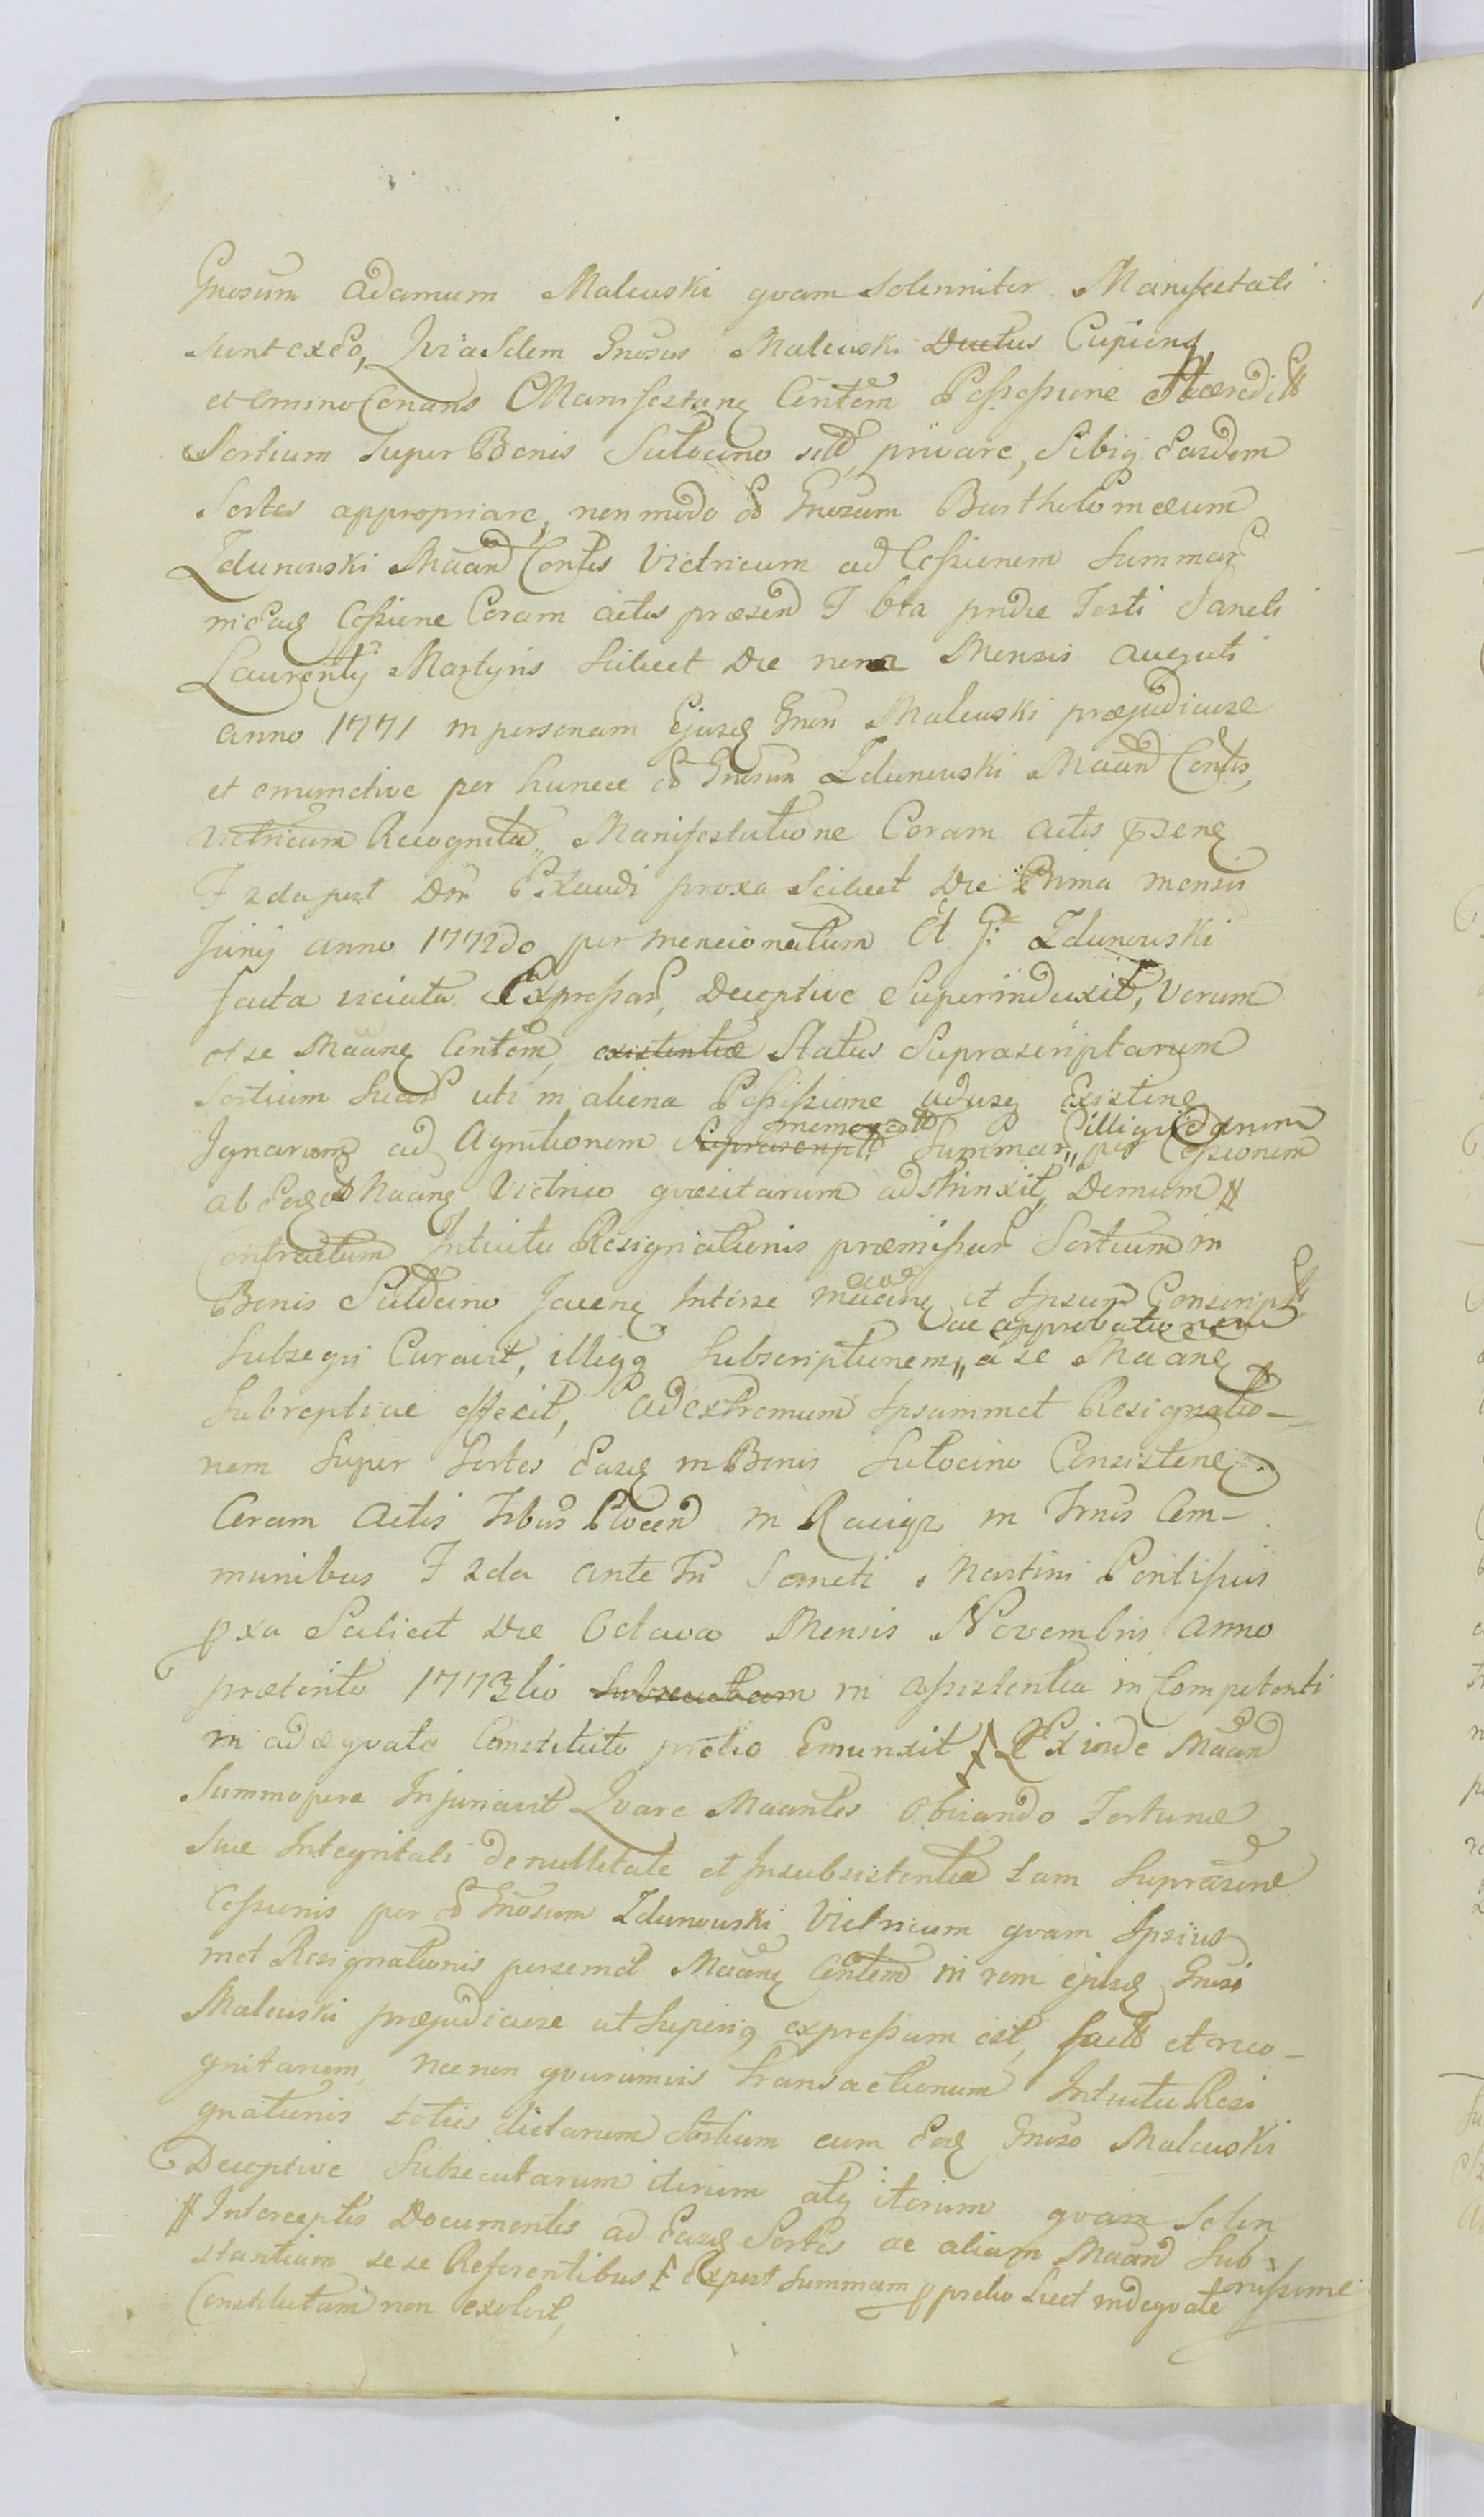 Gnosum Adamum Malewski qvam Solenniter Manifestati
sunt ex eo, Qvia Idem Gnosus Malewski Ductus Cupiens
et omino Conans Manifestane Contem Possessione Haeredit
Sortium super Bonis Sulocino sitt, privare, Sibiq Easdem
Sortes appropriare, non modo Gnosum Bartholomaeum
Zdunowski Maand Contis Victricum ad Cessionem Summar
in Eaq Cessione Coram actis praesen F 6ta pridie Festi Sancti
Laurentij Martyris Scilicet Die nona Mensis Augusti
Anno 1771 in personam Ejusq Gnoi Malewski praejudiciose
et emunctive per hunce Gnosum Zdunowski Maand Contis,
Victricum Recognita, Manifestatione Coram actis psenq
F 2da post Dm Exaudi proxa Scilicet Die Prima mensis
Junij anno 1772do per mencionatum G: Zdunowski
facta viciata Expressar, Deceptive Superinduxit, Verum
et se Maanq Contem, existentiae Status Suprascriptarum
Sortium Suar uti in aliena Possessione adusq Existenq
memorat illiqvidarum
Ignarum ad Agnitionem Suprascript Summar, per Cessionem
ab Eoq Maanq Victrico qvaesitarum adstrinxit, Demum #
Contractum Intuitu Resignationis praemissar Sortium in
Bonis Sulocino Jacenq Inter se Maanq et Ipsum Conscript
ac approbationem
Subseqvi Curavit, illiqq Subscriptionem,, a se Maanq
Subreptive effecit, Ad extremum Ipsummet Resignatio-
nem Super Sortes Easq in Bonis Sulocino Consistenq
Coram Actis Trbus Plocen in Raciąz in Trnis Com-
munibus F 2da ante Fm Sancti Martini Pontificis
pxa Scilicet Die Octava Mensis Novembris Anno
praeterito 1773tio Subsecutam in Assistentia in Competenti
in adaeqvato Constituto pretio Emunxit Exinde Maand
Summopere Injuriavit Qvare Maantes Obviando Fortunae
Suae Integritati de nullitate et Insubsistentia tam Suprascrip
Cessionis per Gnosum Zdunowski Victricum qvam Ipsius
met Resignationis persemet Maanq Contem in rem ejusq Gnosi
Malewski praejudiciose ut Superiq expressum est, fact et reco-
gnitarum, nec non qvarumvis Transactionum Intuitu Resi
gnationis toties dictarum Sortium cum Eoq Gnoso Malewski
Deceptive Subsecutarum iterum atq iterum qvam Solen
# Interceptis Documentis ad Easq Sortes ac aliam Maand Sub-
nissime
stantiam se se Referentibus Expost Summam p pretio Licet indeqvate
Constitutam non exolvit,